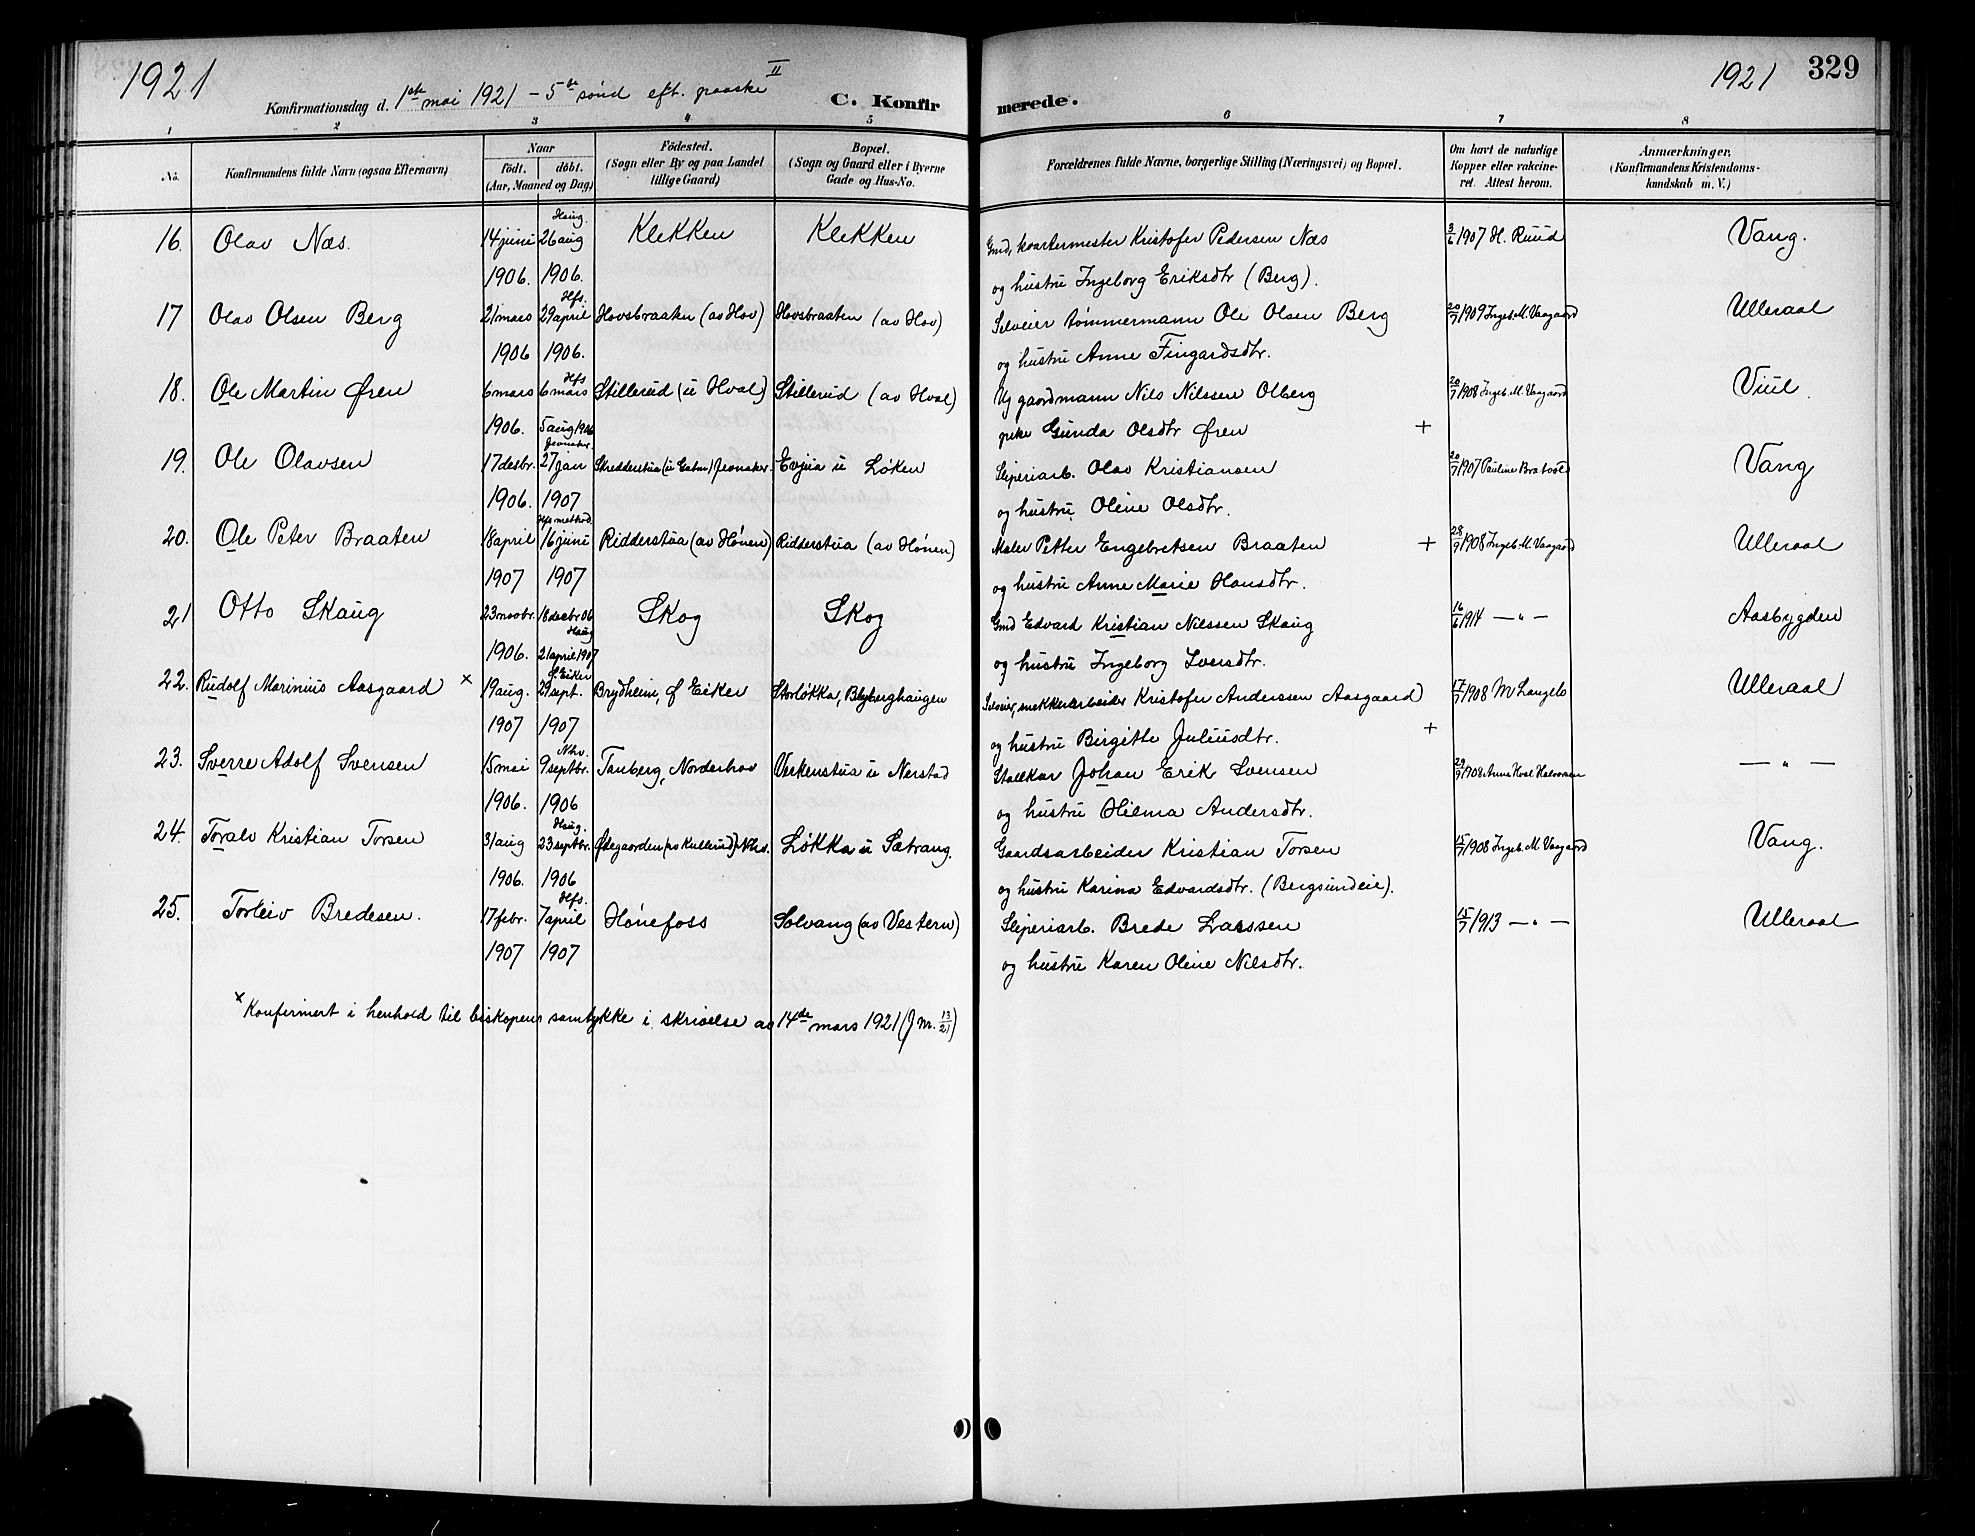 1921
Konfirmationsdag d. 1ste mai 1921 – 5te sönd eft. paaske II
C. Konfirmerede.
1921
329
1 2 3 4 5 6 7 8
No.
Konfirmandens fulde Navn (ogsaa Efternavn)
Naar
födt. döbt.
(Aar, Maaned og Dag)
Födested.
(Sogn eller By og paa Landet
tillige Gaard)
Bopæl.
(Sogn og Gaard eller i Byerne
Gade og Hus-No.
Forældrenes fulde Navne, borgerlige Stilling (Næringsvei) og Bopæl.
Om havt de naturlige
Kopper eller vakcine-
ret. Attest herom.
Anmærkninger,
(Konfirmandens Kristendoms-
kundskab m. V.)
Haug.
16. Olav Næs. 14 juni 26 aug Klekken Klekken Gmd, kvartermester Kristofer Pedersen Næs 3/6 1907 H. Ruud Vang.
1906. 1906. og hustru Ingeborg Eriksdtr (Berg).
Hfs.
17 Olav Olsen Berg 21 mars 29 april Hovsbraaten (av Hov) Hovsbraaten (av Hov) Selveier tømmermann Ole Olsen Berg 20/7 1909 Ingeb. M. Vaagaard Ulleraal
1906 1906. og hustru Anne Fingardsdtr.
Hfs
18. Ole Martin Øren 6 mars 6 mars Stillerud (u Hval) Stillerud (av Hval) Ug gaardmann Nils Nilssen Olberg 20/7 1908 Ingeb. M. Vaagaard Viul.
1906. 5 aug 1906 pike Gunda Olsdtr Øren +
Jevnaker
19. Ole Olavsen 17 desbr. 27 jan Skredderstua (u Galm) Jevnaker. Evjua u Løken Sliperiarb. Olav Kristiansen 20/7 1907 Pauline Bratvold Vang
1906. 1907 og hustru Oline Olsdtr.
Hfs method.
20. Ole Peter Braaten 18 april 16 juni Ridderstua (av Hönen) Ridderstua (av Hönen) Maler Petter Engebretsen Braaten + 28/9 1908 Ingeb. M. Vaagaard Ulleraal
1907 1907 og hustru Anne Marie Hansdtr.
21 Otto Skaug 23 novbr. 18 desbr 06 Skog Skog Gmd Edvard Kristian Nilssen Skaug 16/6 1914 — " — Aasbygden
Haug
1906. 21 april 1907 og hustru Ingeborg Iversdtr.
Ø. Eiker
22. Rudolf Marinius Aasgaard × 19 aug. 29 sept. Brydheim, Ø Eiker Storløkka, Blybærghaugen Selveier, snekkerarbeider Kristofer Anderssen Aasgaard 17/7 1908 M Langelo Ulleraal
1907 1907 og hustru Birgitte Juliusdtr. +
Nhv.
23. Sverre Adolf Svensen 15 mai 9 septbr. Tanberg, Norderhov Verkenstua u Nerstad Staalkar Johan Erik Svensen 29/9 1908 Anna Hval Halvorsen — " —
1906. 1906 og hustru Hilma Andersdtr.
Haug.
24. Toralv Kristian Torsen 31 aug 23 septbr. Østegaarden (av Kullerud) Nhv. Løkka u Sætrang. Gaardsarbeider Kristian Torsen 15/7 1908 Ingeb. M. Vaagaard Vang.
1906. 1906 og hustru Karina Edvardsdtr. (Bergsundeie).
Hfs.
25. Torleiv Bredesen. 17 febr. 7 april Hönefoss Solvang (av Vestern) Sliperiarb. Brede Larssen 15/7 1913 — " — Ulleraal
1907 1907 og hustru Karen Oline Nilsdtr.
× Konfirmert i henhold til biskopens samtykke i skrivelse av 14de mars 1921 (J nr. 13/21)